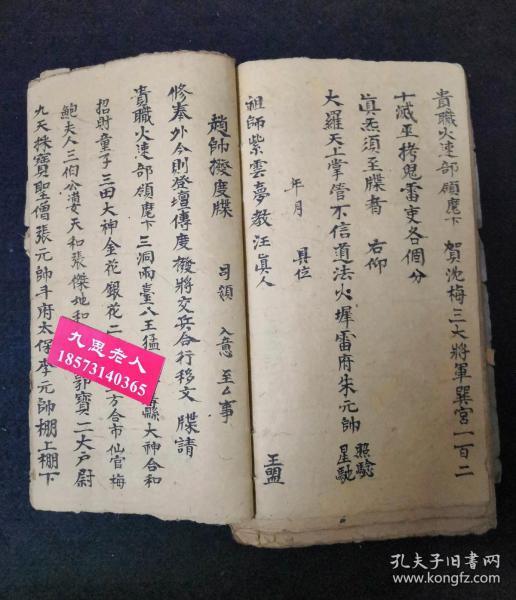 貴職火速部領麾下 賀沈梅三大將軍巽宮一百二
十滅巫拷鬼雷吏各個分
真炁須至牒者 右仰
大羅天上掌管不信道法火犀雷府朱元帥 照驗 星馳
年 月 具位
祖師紫雲夢教汪真人
王盟
趙帥撥度牒 司額 入意 至厶事
修奉外今則登壇傳度撥將交兵合行移文 牒請
貴職火速部領麾下三洞兩臺八王猛
縣大神合和
招財童子三田大神金花銀花二
方合市仙官梅
鮑夫人三伯公婆天和張傑地和
郭寶二大戶尉
九天珠寶聖僧張元帥斗府太保李元帥棚上棚下
九思老人
18573140365
孔夫子旧書网